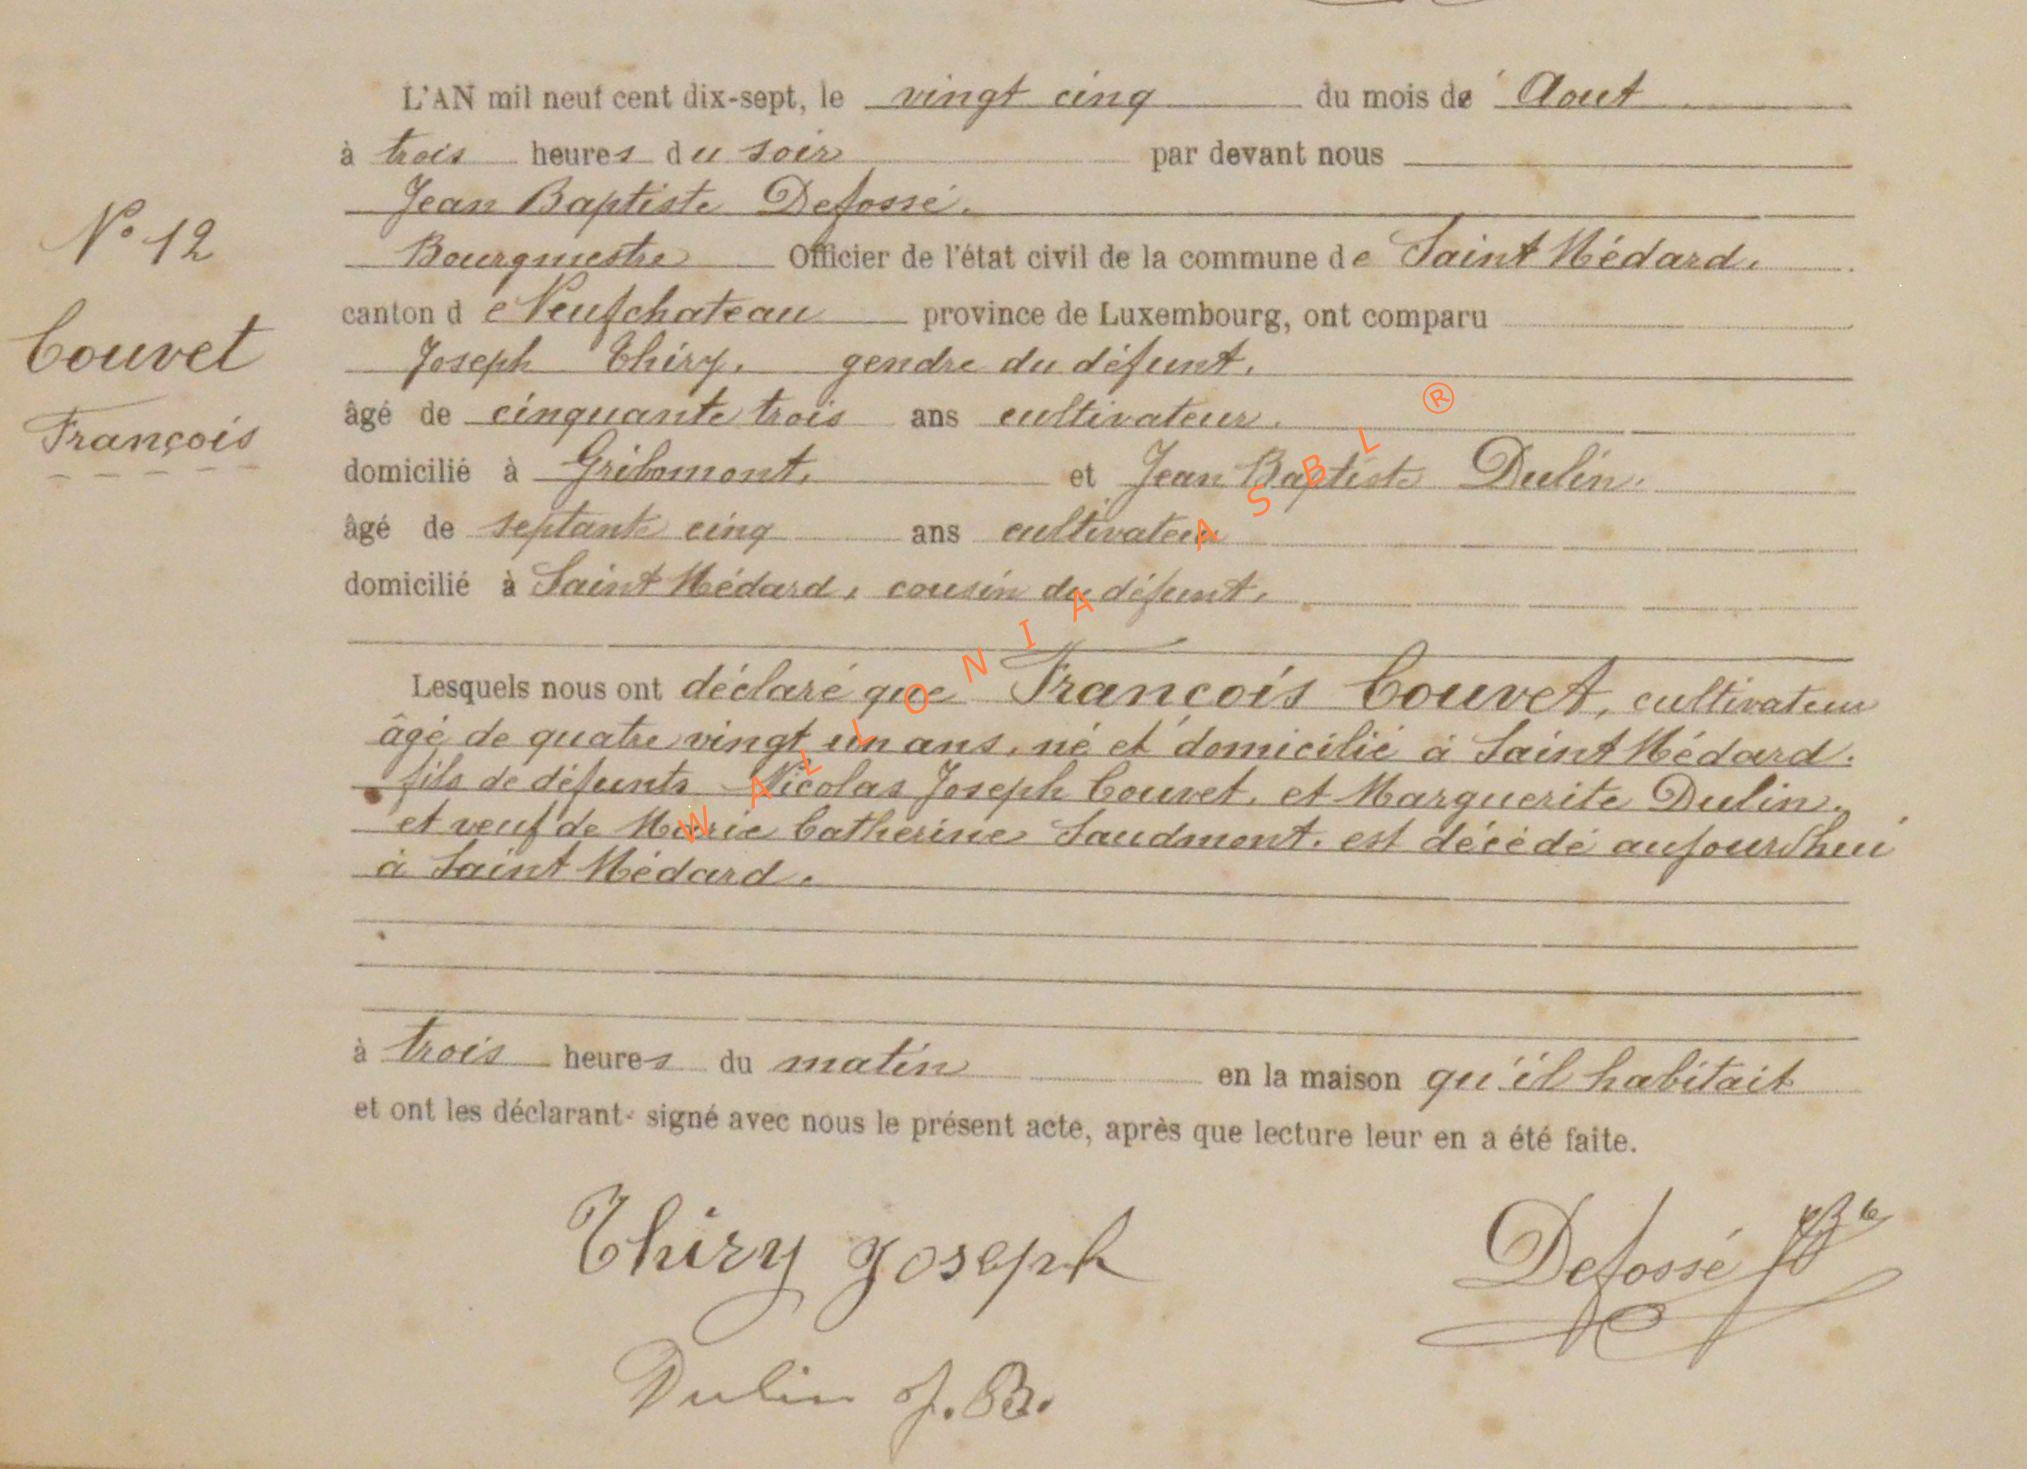 L'AN mil neuf cent dix-sept, le vingt cinq du mois de Aout
à trois heures du soir par devant nous
Jean Baptiste Defossé.
N° 12
Bourgmestre Officier de l'état civil de la commune de Saint Médard.
canton de Neufchateau province de Luxembourg, ont comparu
Couvet
Joseph Thiry, gendre du défunt,
âgé de cinquante trois ans cultivateur.
François
domicilié à Gribomont, et Jean Baptiste Dulin.
âgé de septante cinq ans cultivateur
domicilié à Saint Médard, cousin du défunt,
Lesquels nous ont déclaré que François Couvet, cultivateur
âgé de quatre vingt un ans, né et domicilié à Saint Médard.
fils de défunts Nicolas Joseph Couvet, et Marguerite Dulin,
et veuf de Marie Catherine Saudmont. est décédé aujourd'hui
à Saint Médard.
à trois heures du matin en la maison qu'il habitait
et ont les déclarant signé avec nous le présent acte, après que lecture leur en a été faite.
Thiry Joseph
Defossé JBte
Dulin J.B.
WALLONIA ASBL ®